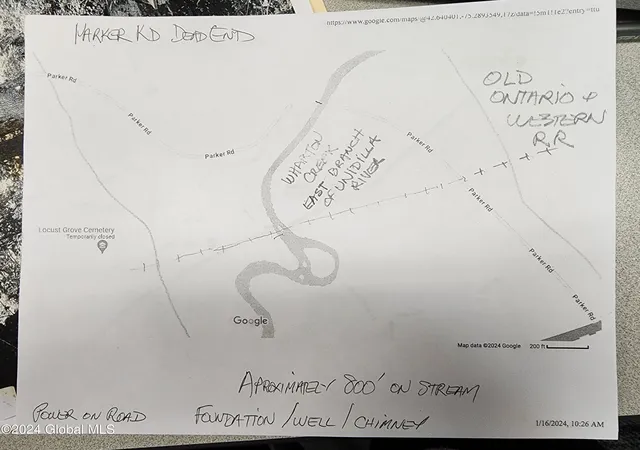 https://www.google.com/maps/@42.640401,-75.2893549,17z/data=!5m1!1e2?entry=ttu
MARKER RD DEAD END
Parker Rd
OLD
ONTARIO &
WESTERN
R.R
Parker Rd
Parker Rd
Parker Rd
WHARTON
CREEK
EAST BRANCH
OF UNIDILLA
RIVER
Parker Rd
Locust Grove Cemetery
Temporarily closed
Parker Rd
Parker Rd
Google
Map data ©2024 Google
200 ft
APROXIMATELY 800' ON STREAM
POWER ON ROAD
FOUNDATION / WELL / CHIMNEY
1/16/2024, 10:26 AM
©2024 Global MLS